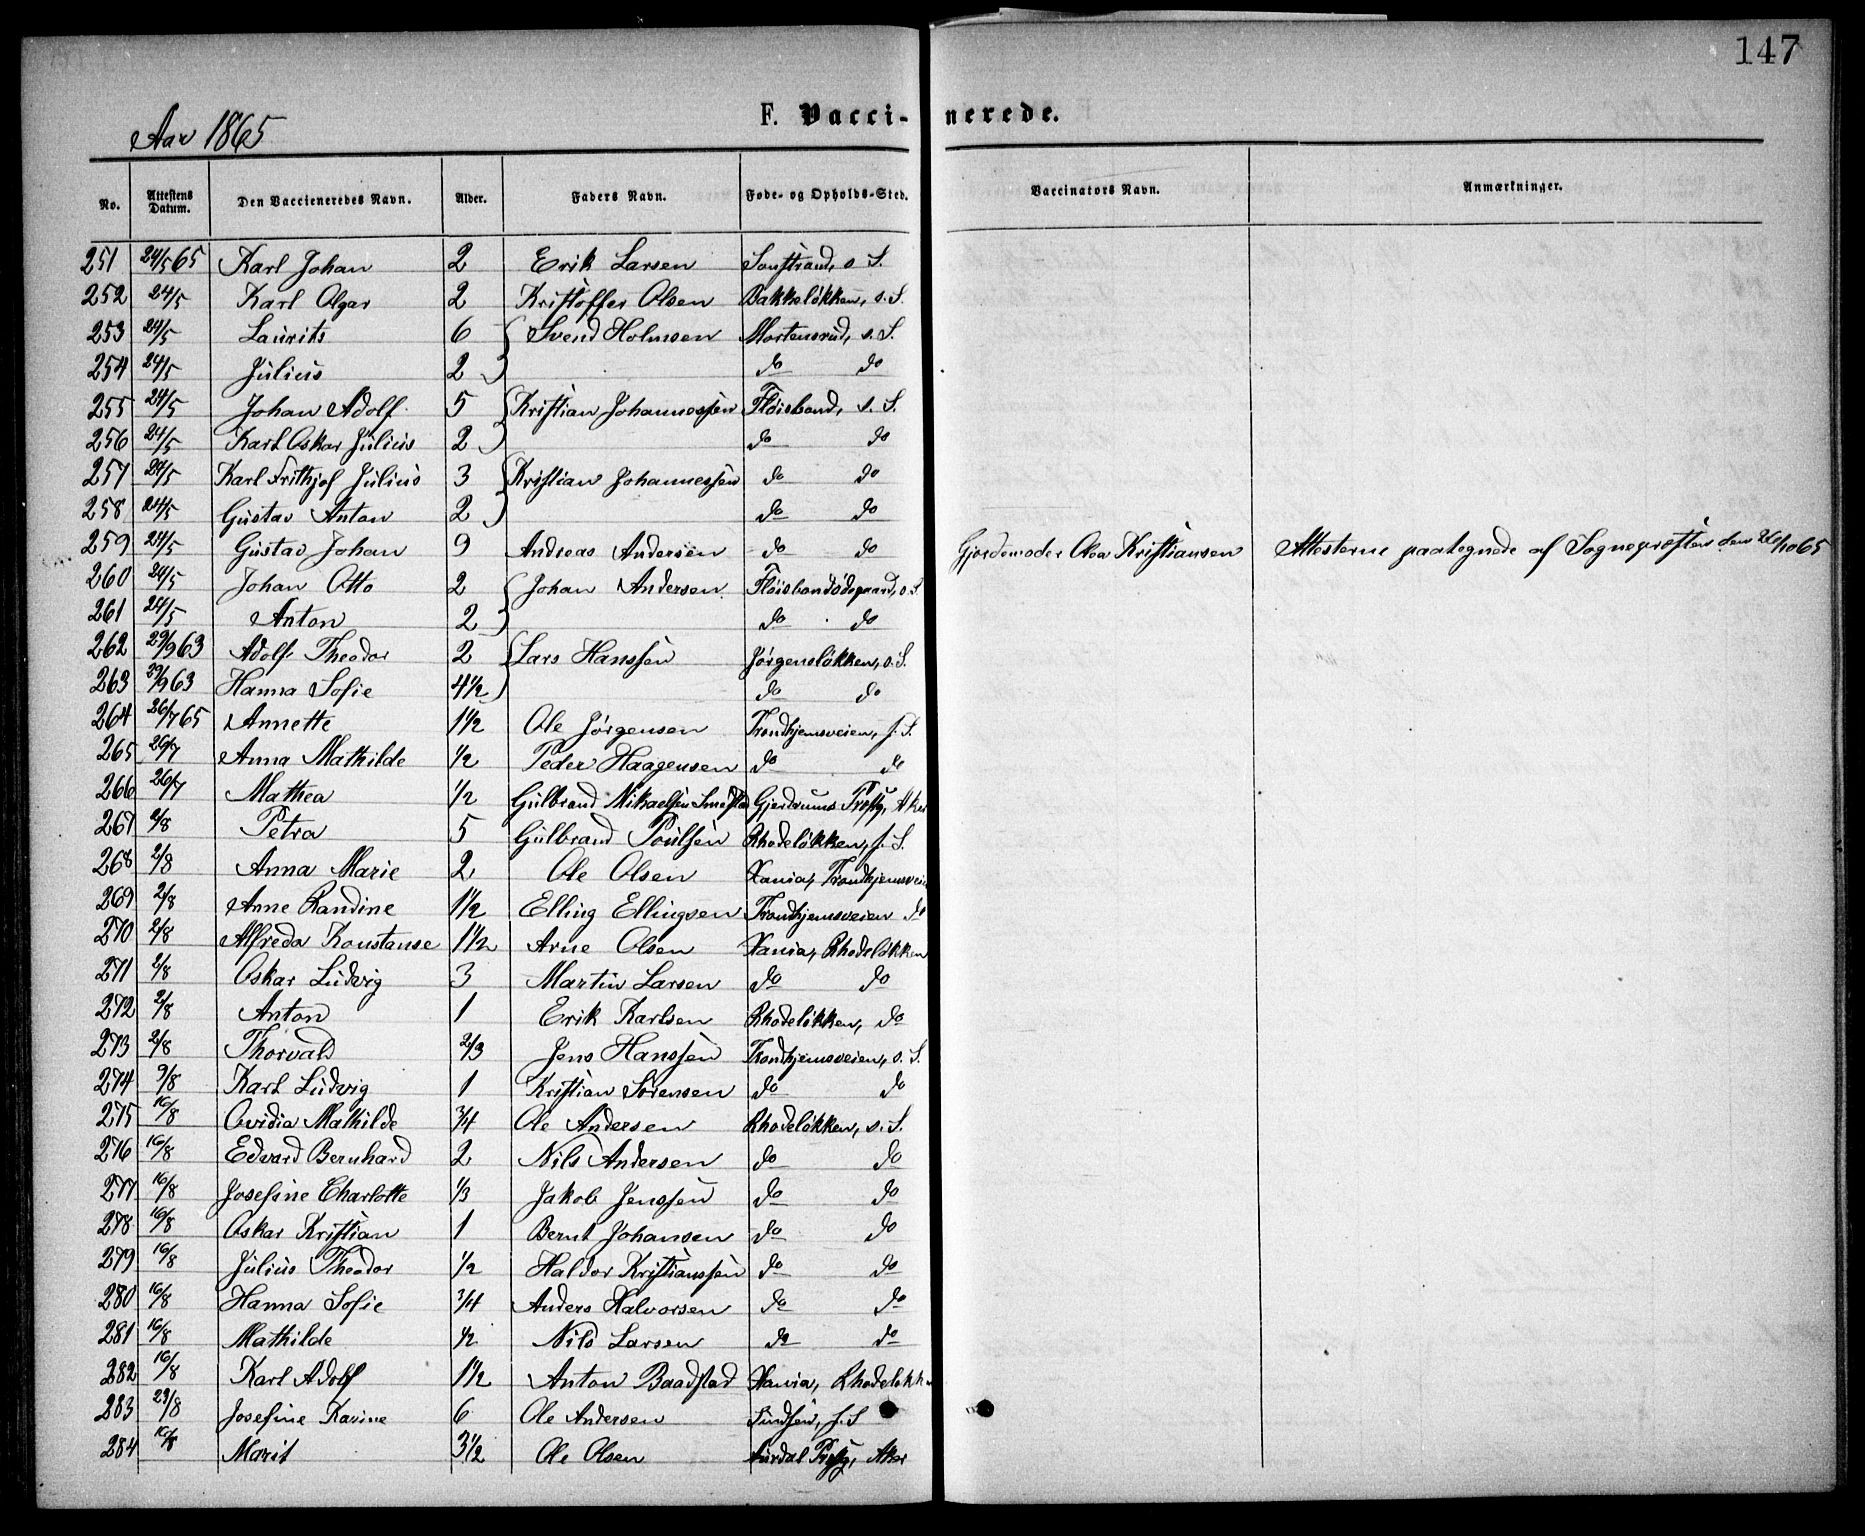 147
Aar 1865
F. Vaccinerede.
No. Attestens Datum. Den Vaccieneredes Navn. Alder. Faders Navn. Føde- og Opholds-Sted. Vaccinators Navn. Anmærkninger.
251 24/5 65 Karl Johan 2 Erik Larsen s. S.
252 24/5 Karl Olgar 2 Kristoffer Olsen Bakkeløkken, s. S.
253 24/5 Laurits 6 Svend Holmsen Mortensrud, s. S.
254 24/5 Julius 2 do do
255 24/5 Johan Adolf 5 Kristian Johannessen Fløisbond, s. S.
256 24/5 Karl Oskar Julius 2 do do
257 24/5 Karl Frithjof Julius 3 Kristian Johannessen do do
258 24/5 Gustav Anton 2 do do
259 24/5 Gustav Johan 9 Andreas Andersen do do Gjordemoder Olea Kristiansen Attesterne paategnede af Sognepræsten den 26/10 65
260 24/5 Johan Otto 2 Johan Andersen Fløisbondødegaard, s. S.
261 24/5 Anton 2 do do
262 29/9 63 Adolf Theodor 2 Lars Hanssen Jørgensløkken, s. S.
263 29/9 63 Hanna Sofie 4 1/2 do do
264 26/7 65 Annette 1 1/2 Ole Jørgensen Trondhjemsveien, s. S.
265 26/7 Anna Mathilde 1/2 Peder Haagensen do do
266 26/7 Mathea 1/2 Gulbrand Mikaelsen Smestad Gjerdrums Prstg, Aker
267 2/8 Petra 5 Gulbrand Poulsen Rhodeløkken, s. S.
268 2/8 Anna Marie 2 Ole Olsen Xania, Trondhjemsveie
269 2/8 Anne Randine 1 1/2 Elling Ellingsen Trondhjemsveien do
270 2/8 Alfreda Konstanse 1 1/2 Arne Olsen Xania, Rhodeløkken
271 2/8 Oskar Ludvig 3 Martin Larsen do do
272 2/8 Anton 1 Erik Karlsen Rhodeløkken, do
273 2/8 Thorvald 2/3 Jens Hanssen Trondhjemsveien, s. S.
274 9/8 Karl Ludvig 1 Kristian Sørensen do do
275 16/8 Ovidia Mathilde 3/4 Ole Andersen Rhodeløkken, s. S.
276 16/8 Edvard Bernhard 2 Nils Andersen do do
277 16/8 Josefine Charlotte 1/3 Jakob Jenssen do do
278 16/8 Oskar Kristian 1 Bernt Johansen do do
279 16/8 Julius Theodor 1/2 Haldor Kristianssen do do
280 16/8 Hanna Sofie 3/4 Anders Halvorsen do do
281 16/8 Mathilde 1/2 Nils Larsen do do
282 16/8 Karl Adolf 1 1/2 Anton Baadstad Xania, Rhodeløkke
283 23/8 Josefine Karine 6 Ole Andersen s. S.
284 16/8 Marit 3 1/2 Ole Olsen Aurdal Prstg, Aker